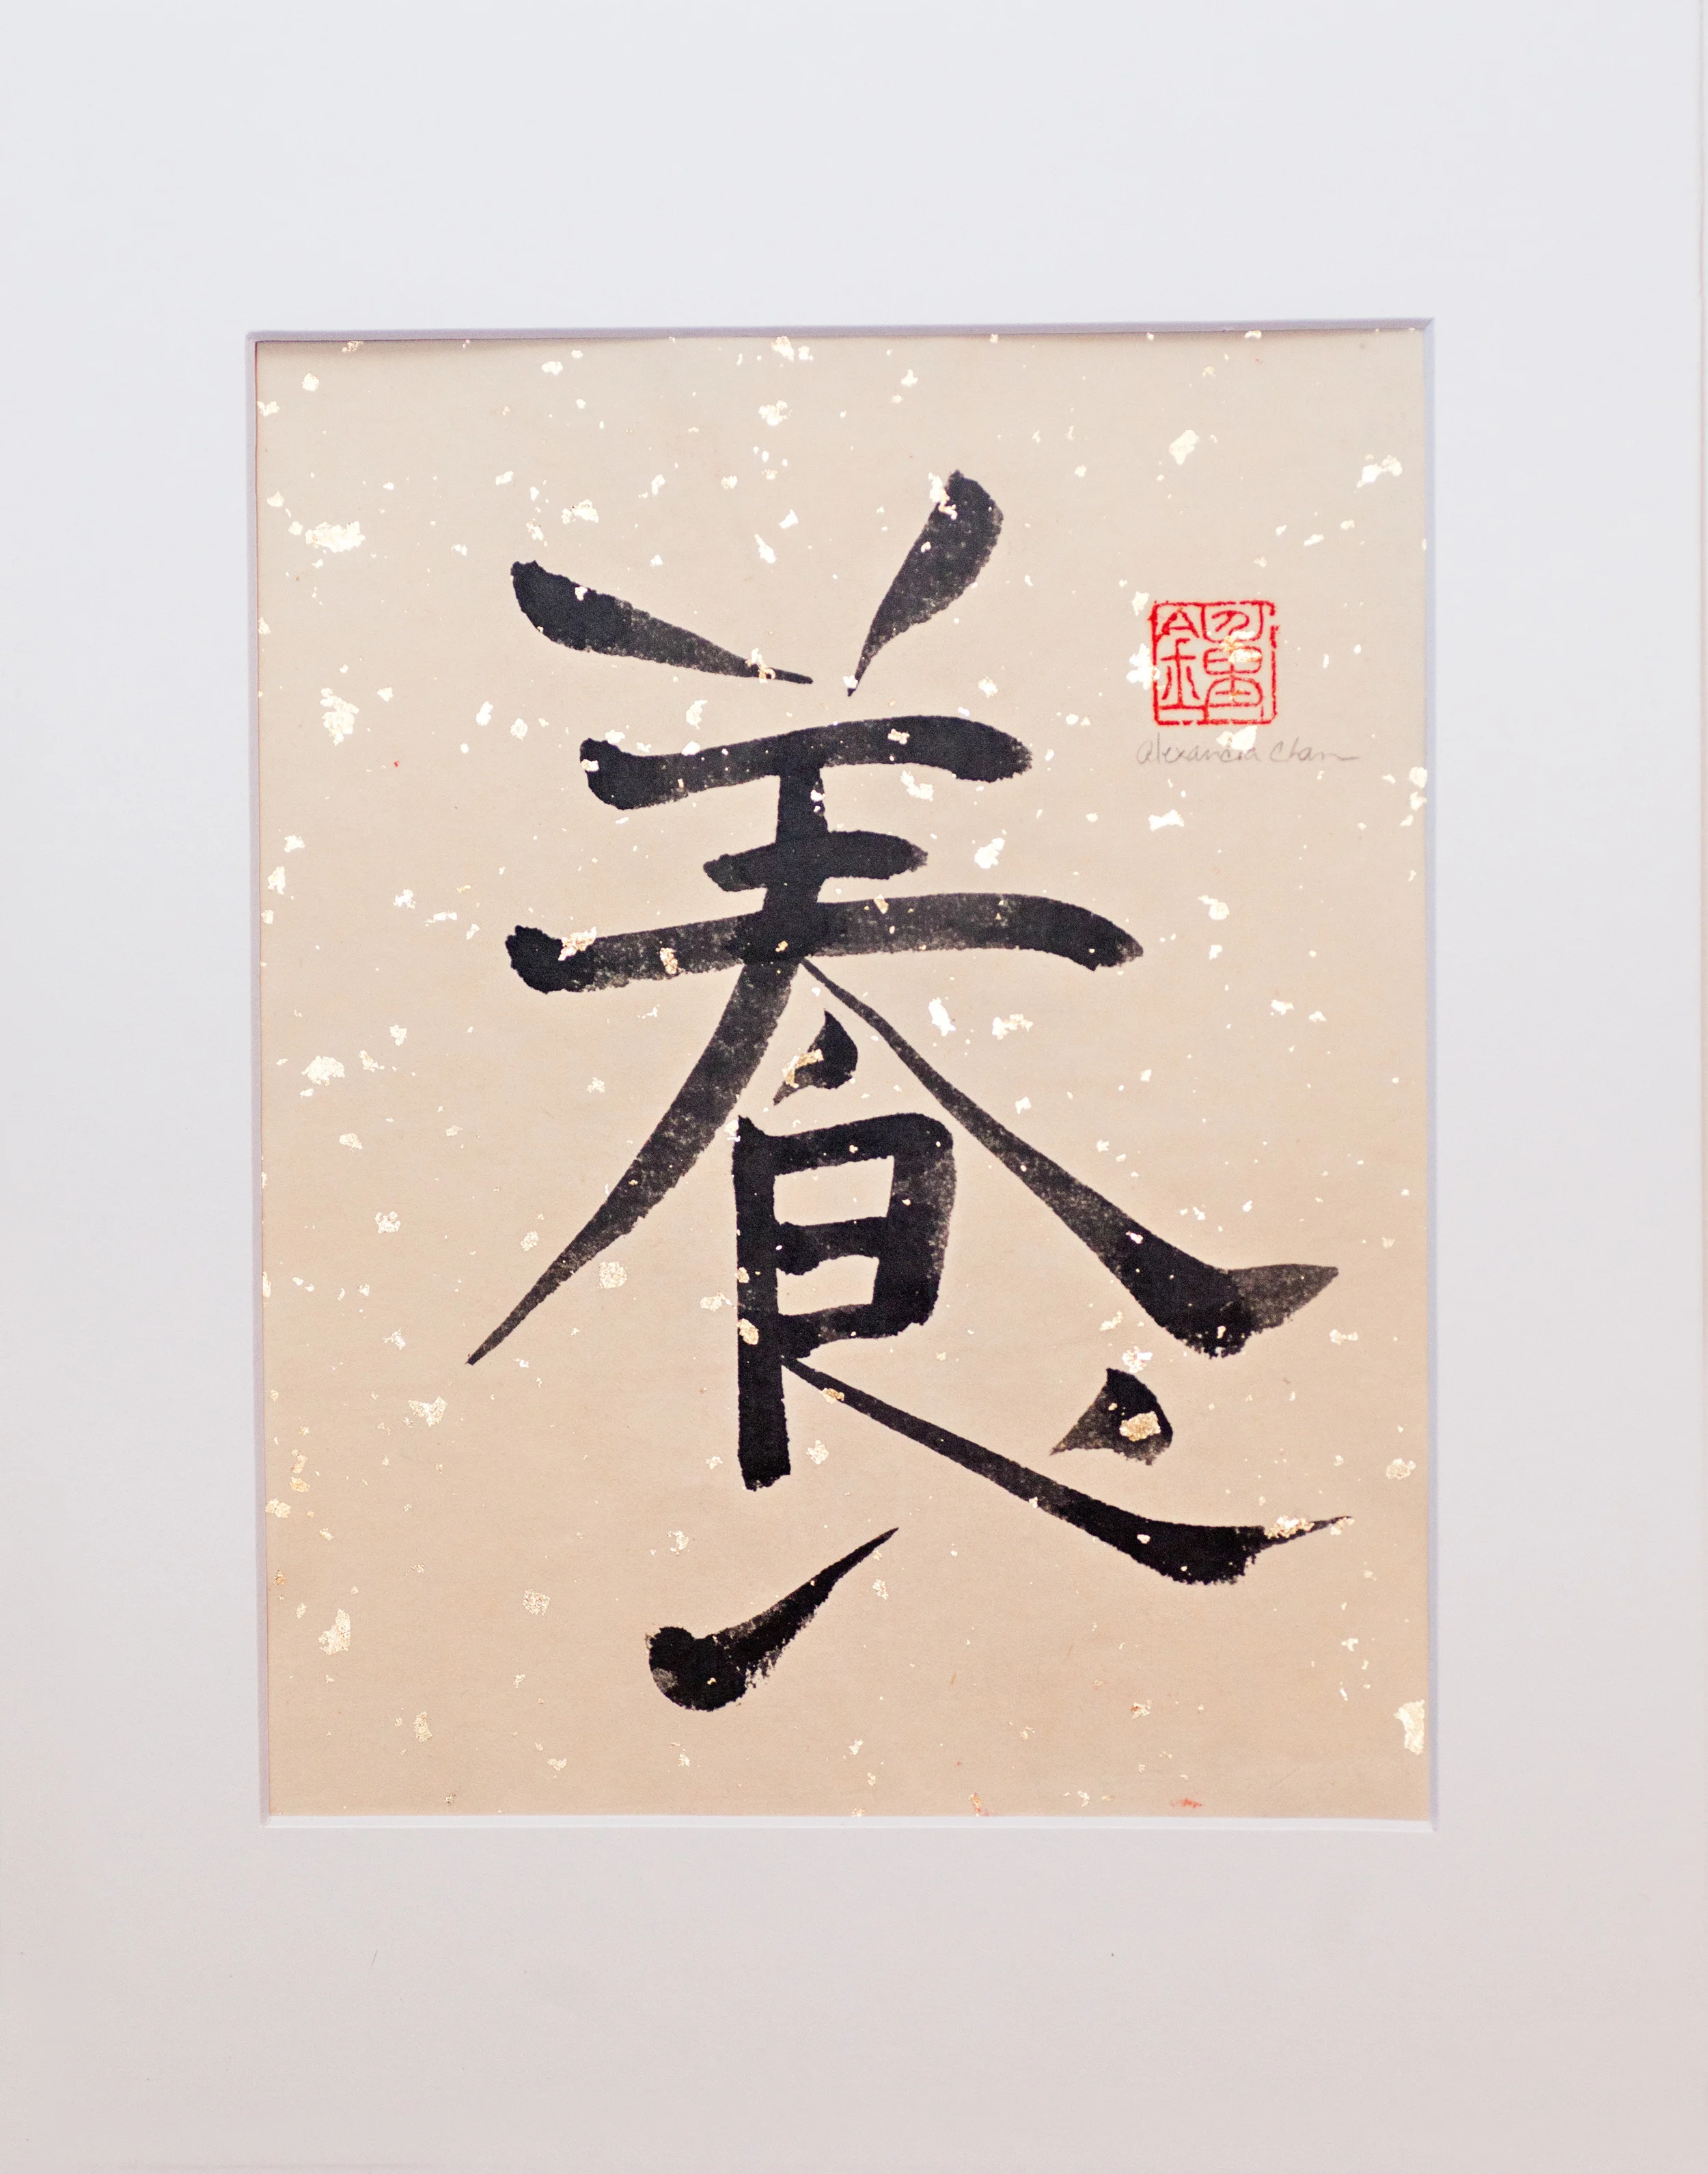 養
Alexandra Chan